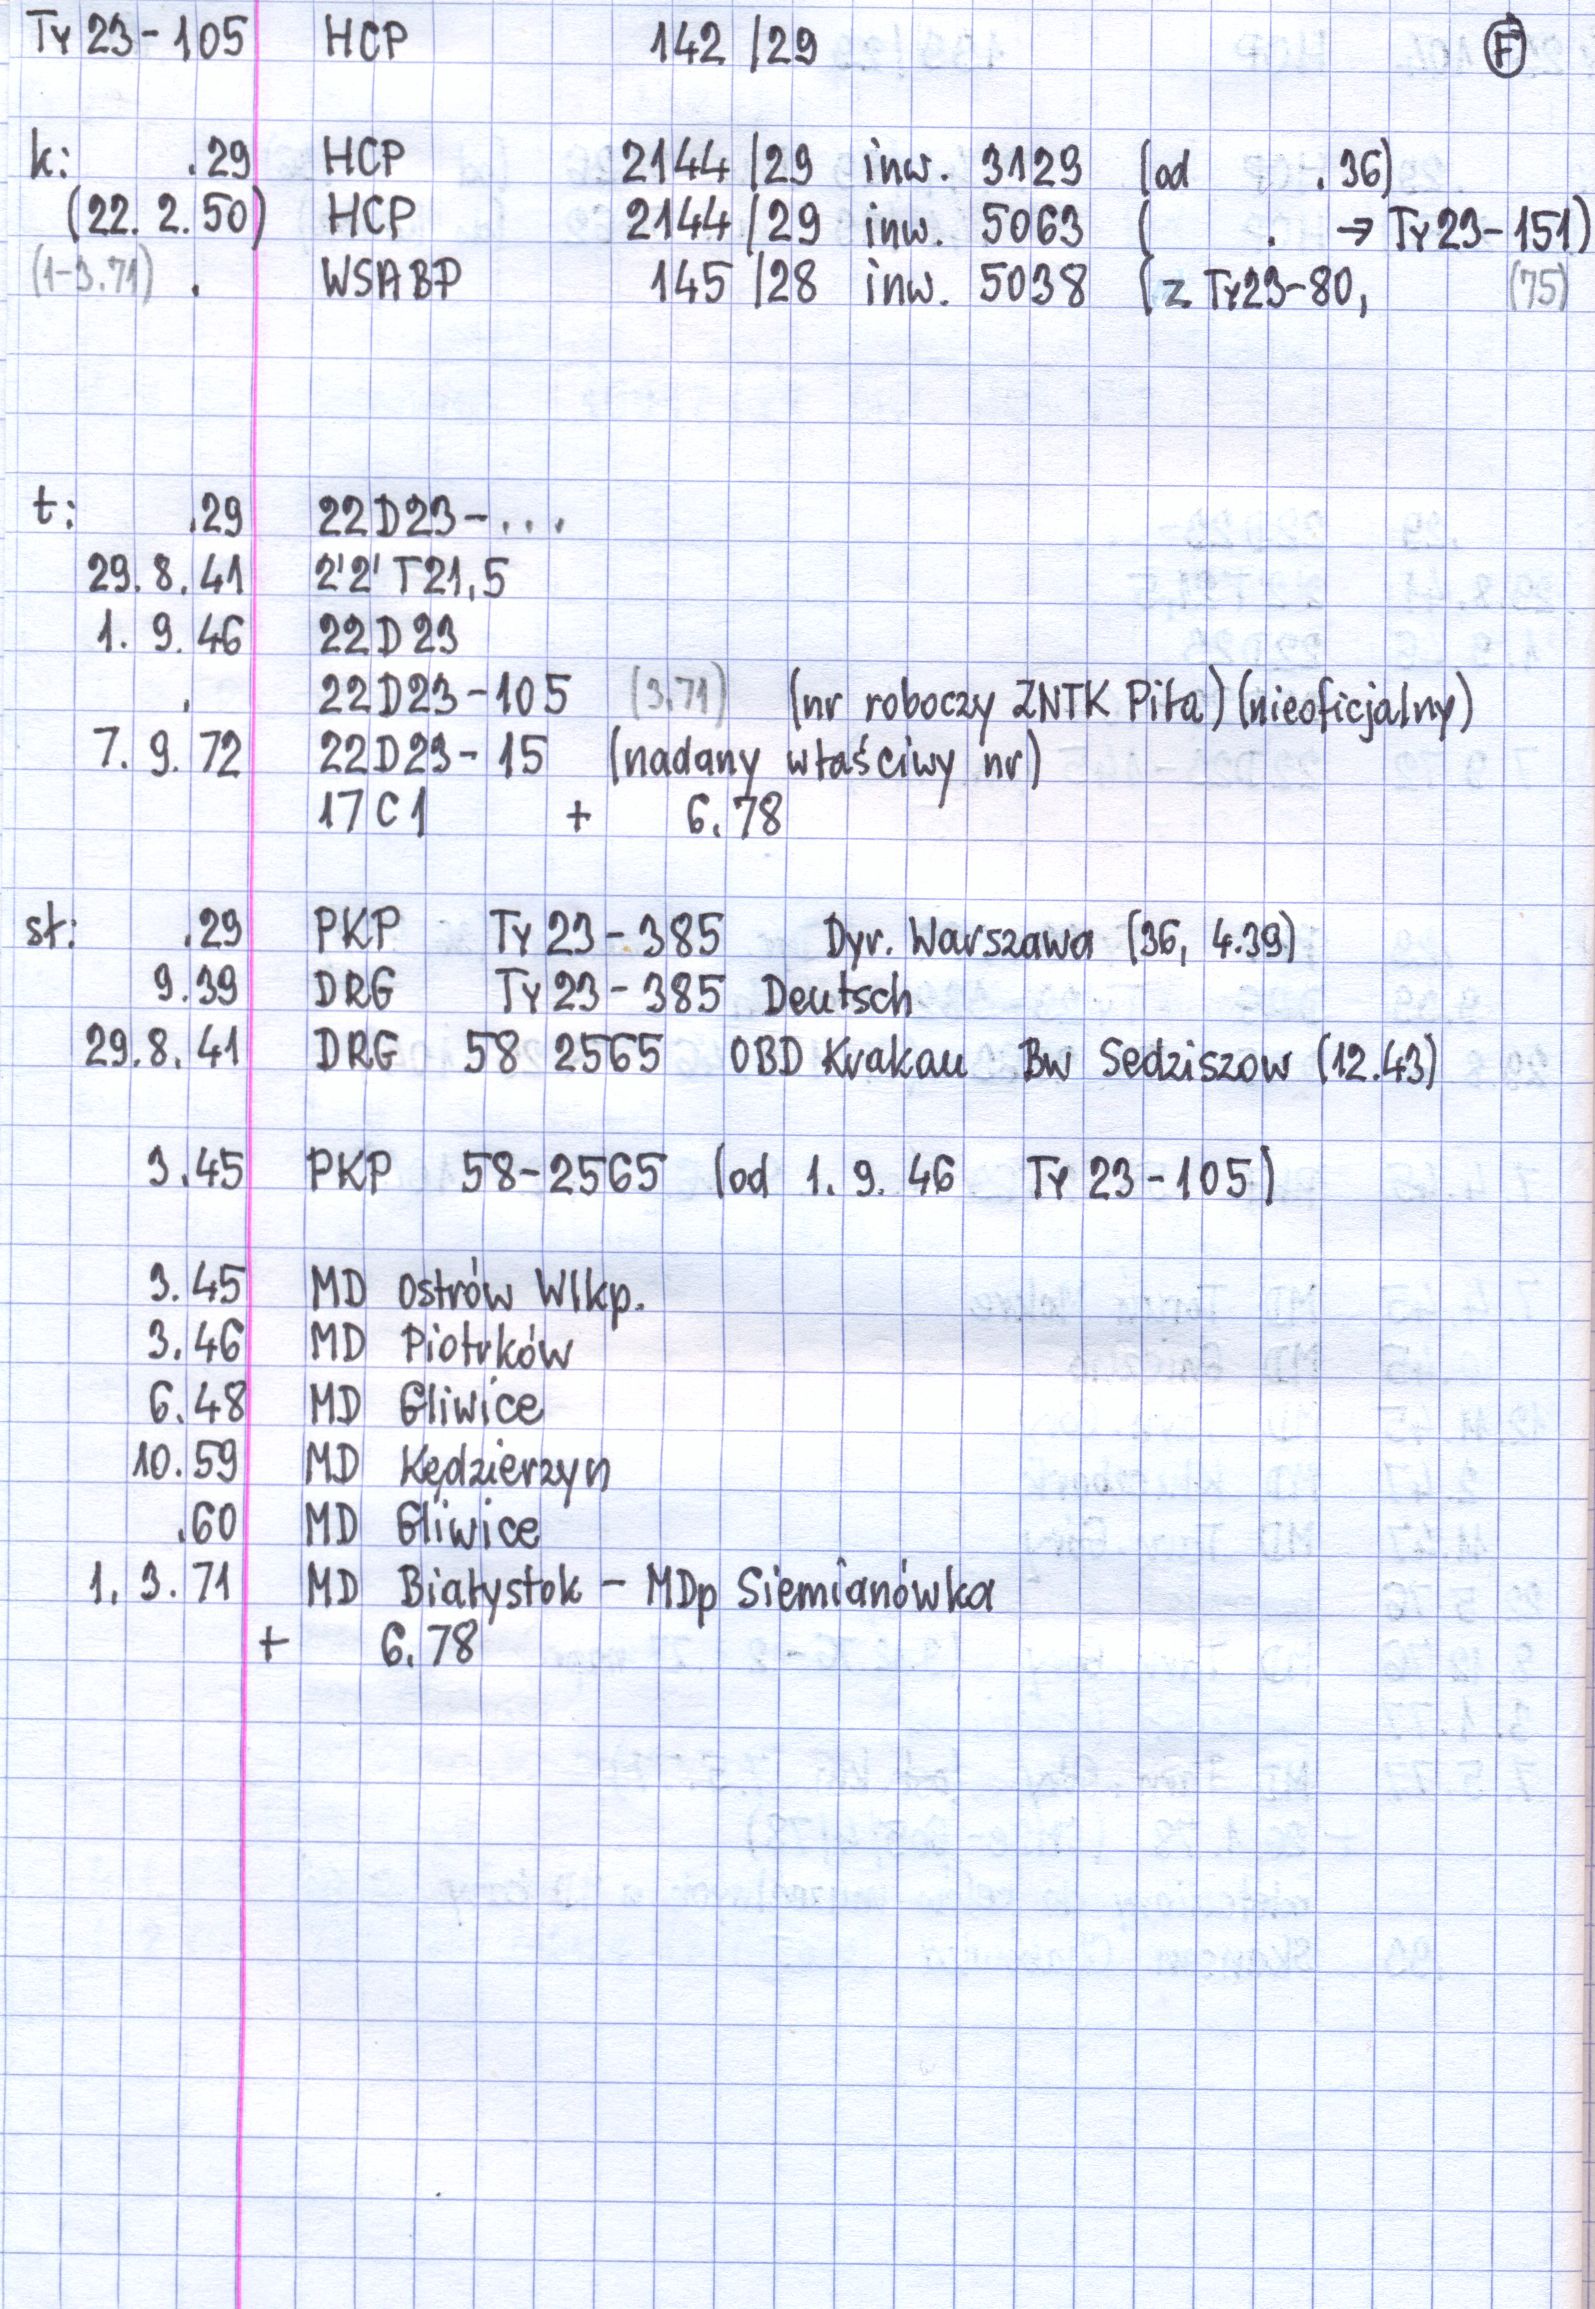 Ty 23-105 HCP 142/29 F
k: .29 HCP 2144/29 inw. 3129 (od .36)
(22. 2. 50) HCP 2144/29 inw. 5063 ( . → Ty23-151)
(1-3.71) . WSABP 145/28 inw. 5038 (z Ty23-80, (75)
t: .29 22D23-...
29. 8. 41 2'2' T21,5
1. 9. 46 22D23
. 22D23-105 (3.71) (nr roboczy ZNTK Piła) (nieoficjalny)
7. 9. 72 22D23-15 (nadany właściwy nr)
17C1 + 6.78
sł: .29 PKP Ty 23-385 Dyr. Warszawa (36, 4.39)
9.39 DRG Ty 23-385 Deutsch
29. 8. 41 DRG 58 2565 OBD Krakau Bw Sedziszow (12.43)
3.45 PKP 58-2565 (od 1. 9. 46 Ty 23-105)
3.45 MD Ostrów Wlkp.
3.46 MD Piotrków
6.48 MD Gliwice
10.59 MD Kędzierzyn
.60 MD Gliwice
1. 3. 71 MD Białystok - MDp Siemianówka
+ 6.78